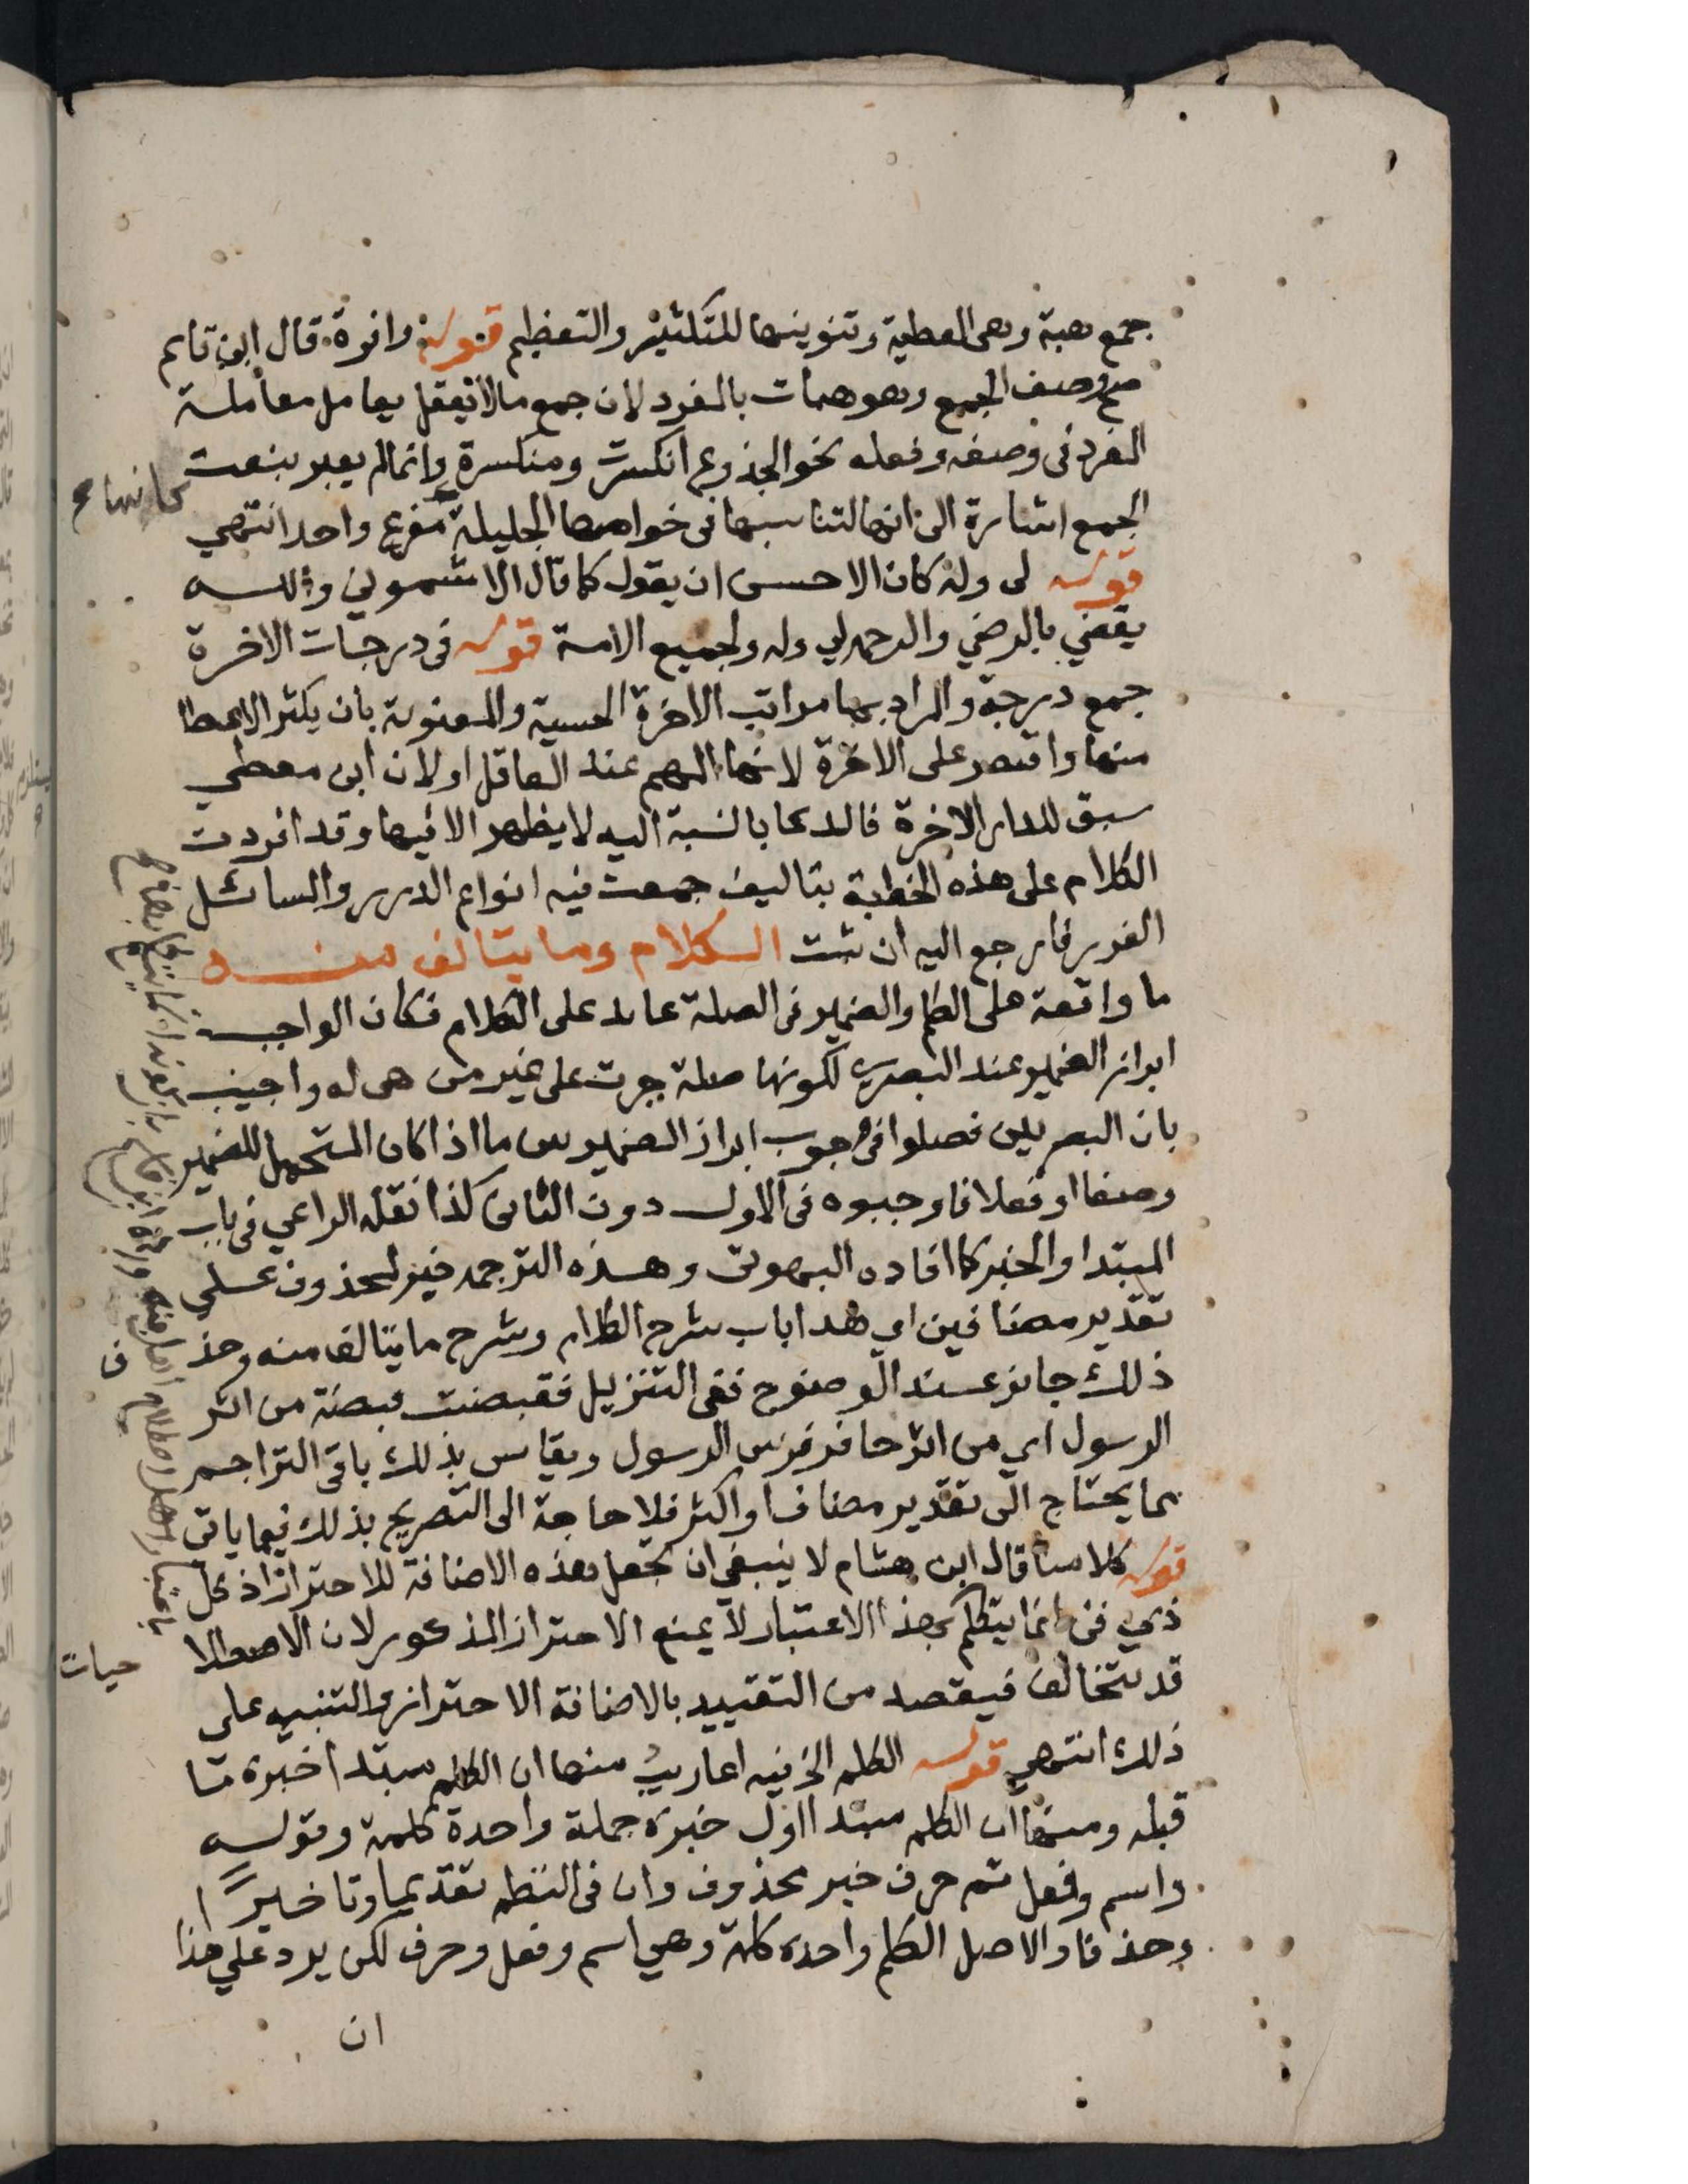 جمع هبة وهى العطية وتنوينها للتكثير والتعظيم قوله وافرة قال ابن قاسم
صح وصف الجمع وهو هبات بالمفرد لان جمع مالا يعقل يعامل معاملة
المفرد فى وصفه وفعله نحو الجذوع انكسرت ومنكسرة وانما لم يعبر بنعت
الجمع اشارة الى انها لتناسبها فى خواصها الجليلة مفرع واحد انتهي
كانها صح
قوله لى وله كان الاحسن ان يقول كما قال الاشموني والله
يقضي بالرضي والرحمه لي وله ولجميع الامة قوله فى درجات الاخرة
جمع درجة والمراد بها مراتب الاخرة الحسية والمعنوية بان يكثر الاعطا
منها واقتصر على الاخرة لانها المهم عند العاقل او لان ابن معطي
سبق للدار الاخرة فالدعا بالنسبة اليه لا يظهر الا فيها وقد افردت
الكلام على هذه الخطبة بتاليف جمعت فيه انواع الدرر والسائل
الغرر فارجع اليه ان شئت الكلام وما يتالف منه
ما واقعة على الكلم والضمير فى الصلة عايد على الكلام فكان الواجب
ابراز الضمير عند البصريه لكونها صلة جرت على غير من هى له واجيب
بان البصريين فصلوا فى وجوب ابراز الضمير بين ما اذا كان المتحمل للضمير
وصفا او فعلا فاوجبوه فى الاول دون الثانى كذا نقله الراعي فى باب
المبتدا والخبر كما افاده البهوتى وهذه الترجمه خبر لمحذوف على
تقدير مضافين اي هذا باب شرح الكلام وشرح ما يتالف منه وحذ
ف
ذلك جايز عند الوضوح ففى التنزيل فقبضت قبضة من اثر
الرسول اي من اثر حافر فرس الرسول ويقاس بذلك باقى التراجم
مما يحتاج الى تقدير مضاف او اكثر فلا حاجة الى التصريح بذلك فيما ياتى
قوله كلامنا قال ابن هشام لا ينبغي ان تجعل هذه الاضافة للاحتراز اذ كل
ذي فن انما يتكلم بهذا الاعتبار لا يمنع الاحتراز المذكور لان الاصطلا
حيات
قد تتخالف فيقصد من التقييد بالاضافة الاحتراز والتنبيه على
ذلك انتهي قوله الكلم الخ فيه اعاريب منها ان الكلم مبتدا خبره ما
قبله ومنها ان الكلم مبتدا اول خبره جملة واحدة كلمة وقوله
واسم وفعل ثم حرف خبر محذوف وان فى النظم تقديما وتاخيرا
وحذفا والاصل الكلم واحده كلمة وهي اسم وفعل وحرف لكن يرد على هذا
ان